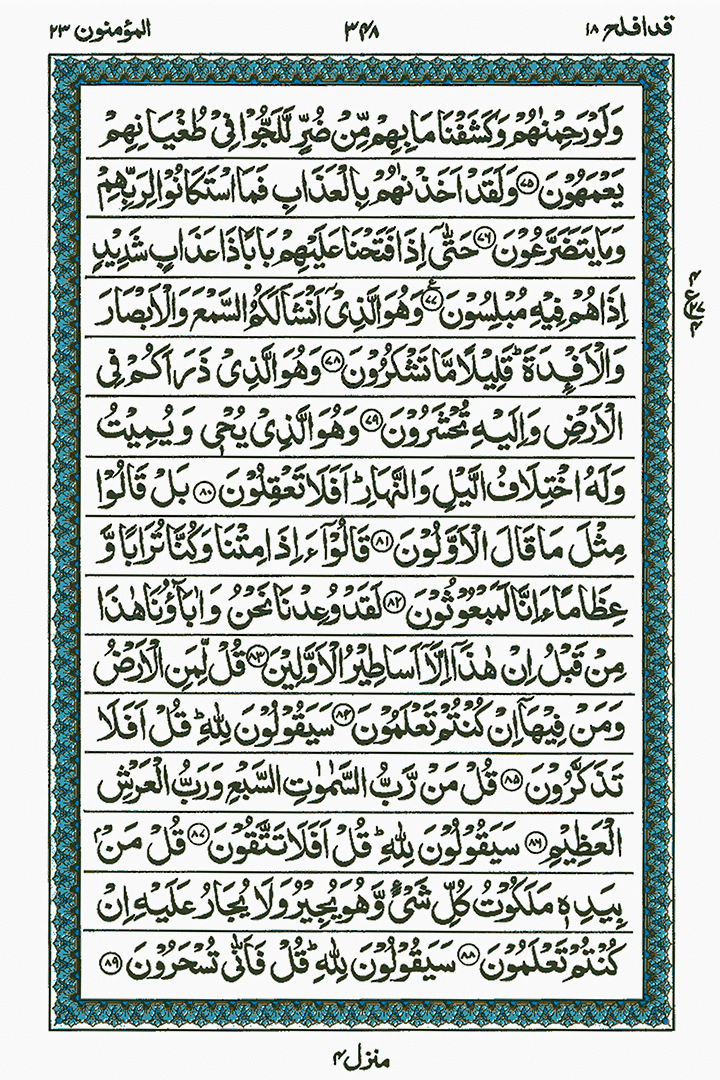 قد افلح ١٨ ٣٤٨ المؤمنون ٢٣
وَلَوْ رَحِمْنٰهُمْ وَكَشَفْنَا مَا بِهِمْ مِّنْ ضُرٍّ لَّلَجُّوْا فِيْ طُغْيَانِهِمْ
يَعْمَهُوْنَ ﴿٧٥﴾ وَلَقَدْ اَخَذْنٰهُمْ بِالْعَذَابِ فَمَا اسْتَكَانُوْا لِرَبِّهِمْ
وَمَا يَتَضَرَّعُوْنَ ﴿٧٦﴾ حَتّٰۤى اِذَا فَتَحْنَا عَلَيْهِمْ بَابًا ذَا عَذَابٍ شَدِيْدٍ
اِذَا هُمْ فِيْهِ مُبْلِسُوْنَ ﴿٧٧﴾ع وَهُوَ الَّذِيْۤ اَنْشَاَ لَكُمُ السَّمْعَ وَالْاَبْصَارَ
وَالْاَفْـِٕدَةَ ؕ قَلِيْلًا مَّا تَشْكُرُوْنَ ﴿٧٨﴾ وَهُوَ الَّذِيْ ذَرَاَكُمْ فِي
الْاَرْضِ وَاِلَيْهِ تُحْشَرُوْنَ ﴿٧٩﴾ وَهُوَ الَّذِيْ يُحْيٖ وَيُمِيْتُ
وَلَهُ اخْتِلَافُ الَّيْلِ وَالنَّهَارِ ؕ اَفَلَا تَعْقِلُوْنَ ﴿٨٠﴾ بَلْ قَالُوْا
مِثْلَ مَا قَالَ الْاَوَّلُوْنَ ﴿٨١﴾ قَالُوْۤا ءَاِذَا مِتْنَا وَكُنَّا تُرَابًا وَّ
عِظَامًا ءَاِنَّا لَمَبْعُوْثُوْنَ ﴿٨٢﴾ لَقَدْ وُعِدْنَا نَحْنُ وَاٰبَآؤُنَا هٰذَا
مِنْ قَبْلُ اِنْ هٰذَاۤ اِلَّاۤ اَسَاطِيْرُ الْاَوَّلِيْنَ ﴿٨٣﴾ قُلْ لِّمَنِ الْاَرْضُ
وَمَنْ فِيْهَاۤ اِنْ كُنْتُمْ تَعْلَمُوْنَ ﴿٨٤﴾ سَيَقُوْلُوْنَ لِلّٰهِ ؕ قُلْ اَفَلَا
تَذَكَّرُوْنَ ﴿٨٥﴾ قُلْ مَنْ رَّبُّ السَّمٰوٰتِ السَّبْعِ وَرَبُّ الْعَرْشِ
الْعَظِيْمِ ﴿٨٦﴾ سَيَقُوْلُوْنَ لِلّٰهِ ؕ قُلْ اَفَلَا تَتَّقُوْنَ ﴿٨٧﴾ قُلْ مَنْۢ
بِيَدِهٖ مَلَكُوْتُ كُلِّ شَيْءٍ وَّهُوَ يُجِيْرُ وَلَا يُجَارُ عَلَيْهِ اِنْ
كُنْتُمْ تَعْلَمُوْنَ ﴿٨٨﴾ سَيَقُوْلُوْنَ لِلّٰهِ ؕ قُلْ فَاَنّٰى تُسْحَرُوْنَ ﴿٨٩﴾
منزل ٤